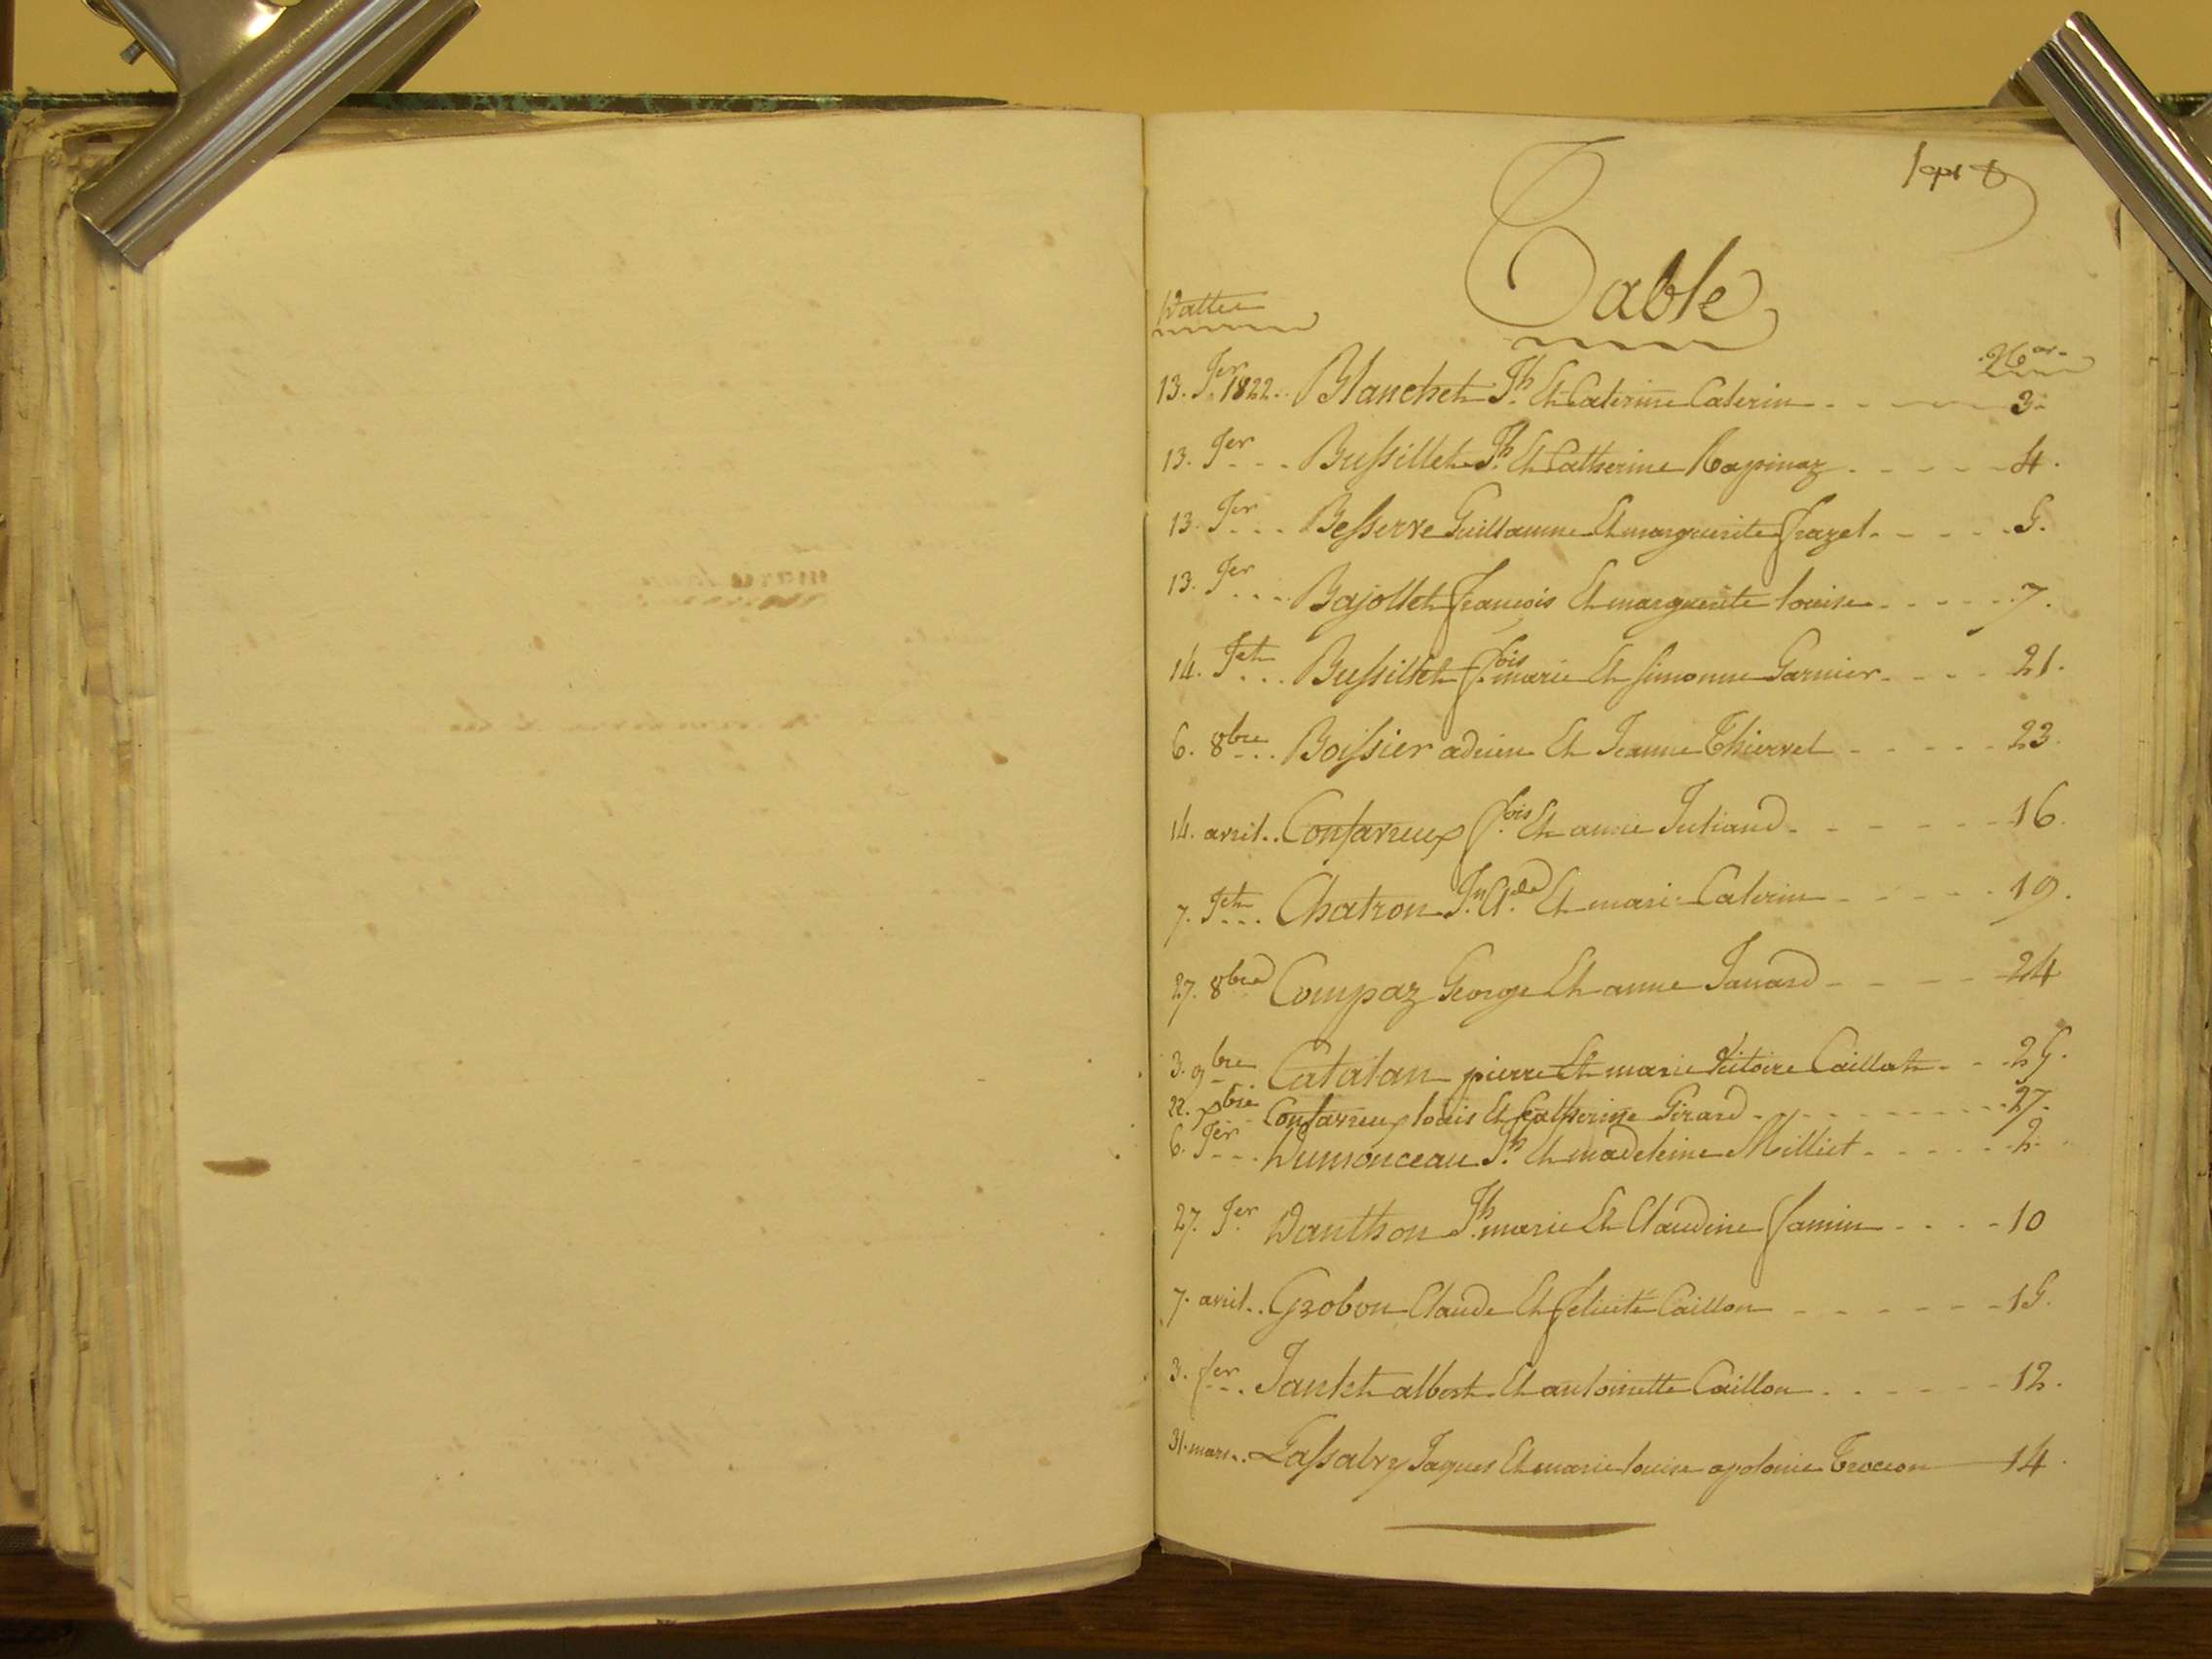 Table
Dattes
Nos
13. Jer 1822.. Blanchet Jh. Et Caterine Caterin 3.
13. Jer Bussillet Jh. Et Catherine Rapinaz 4.
13. Jer Besserve Guillaume Et marguerite frazet 5.
13. Jer Bajollet François Et marguerite louise 7.
14. Jet Bussillet fois. marie Et simonne Garnier 21.
6. 8bre Boissier adrien Et Jeanne Thiervet 23
14. avril.. Confavreux fois. Et anne Juliand 16.
7. Jet Chatron Jn. Cde. Et marie Caterin 19.
27. 8bre Compaz George Et anne Janard 24
3. 9bre Catalan pierre Et marie Vitoire Caillat 25.
22. Xbre Confavreux louis Et Catherine Girard 27.
6. Jer Dumonceau Jh. Et madeleine Milliet 2.
27. Jer Danthon Jh. marie Et Claudine Jamin 10
7. avril.. Grobon Claude Et felicité Caillon 15.
3. fer Janket albert Et antoinette Caillon 12.
31. mars.. Lassalvy Jaques Et marie louise apolonie Troccon 14.